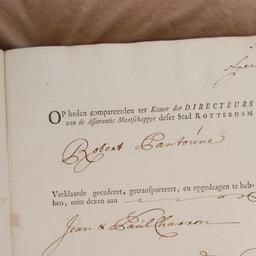 OP heden compareerden ter Kamer der DIRECTEURS
van de Assurantie Maatschappye deser Stad ROTTERDAM
Robert Pantoúne
Verklaarde gecedeert, getransporteert, en opgedragen te heb-
ben, mits dezen aan
Jean & Paúl Charron